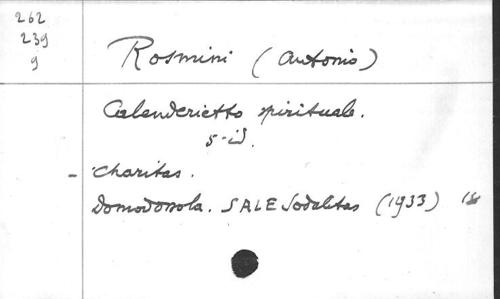 262
239
9
Rosmini (Antonio)
Calenderietto spirituale.
5-id.
- Charitas.
Domodossola. SALE Sodalitas (1933) 18